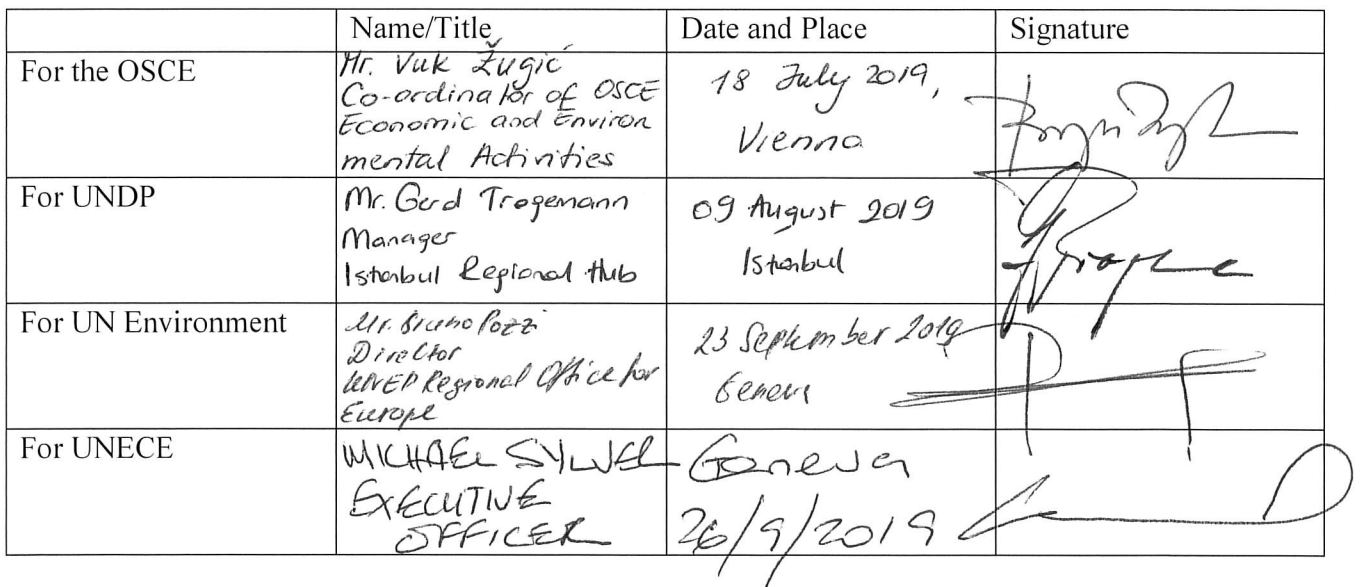 Name/Title Date and Place Signature
For the OSCE
Mr. Vuk Žugić
Co-ordinator of OSCE
Economic and Environ
mental Activities
18 July 2019,
Vienna
For UNDP
Mr. Gerd Trogemann
Manager
Istanbul Regional Hub
09 August 2019
Istanbul
For UN Environment
Mr. Bruno Pozzi
Director
UNEP Regional Office for
Europe
23 September 2019
Geneva
For UNECE
MICHAEL SYLVER
EXECUTIVE
OFFICER
Geneva
26/9/2019